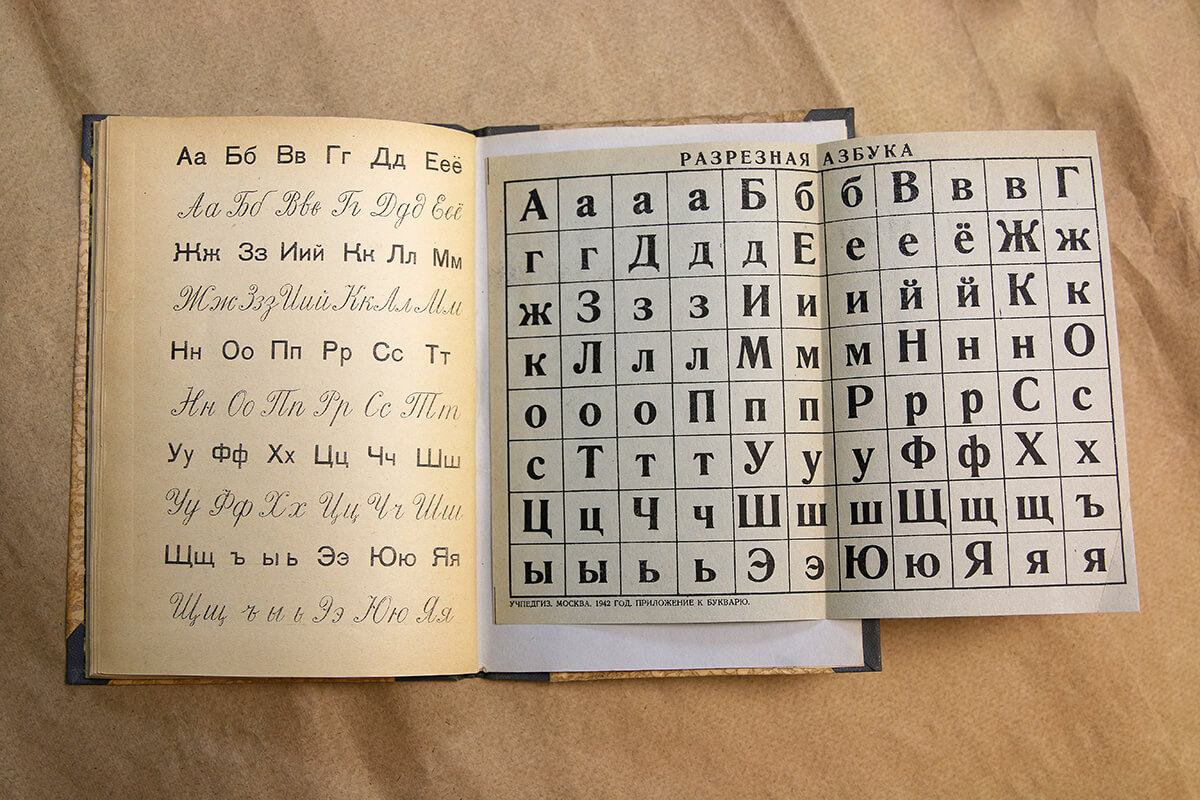 Аа Бб Вв Гг Дд Ееё
Аа Бб Ввв Гг Ддд Ееё
Жж Зз Иий Кк Лл Мм
Жж Ззз Иий Кк Лл Мм
Нн Оо Пп Рр Сс Тт
Нн Оо Пп Рр Сс Тт
Уу Фф Хх Цц Чч Шш
Уу Фф Хх Цц Чч Шш
Щщ ъ ы ь Ээ Юю Яя
Щщ ъ ы ь Ээ Юю Яя
РАЗРЕЗНАЯ АЗБУКА
А а а а Б б б В в в Г
г г Д д д Е е е ё Ж ж
ж З з з И и и й й К к
к Л л л М м м Н н н О
о о о П п п Р р р С с
с Т т т У у у Ф ф Х х
Ц ц Ч ч Ш ш ш Щ щ щ ъ
ы ы ь ь Э э Ю ю Я я я
УЧПЕДГИЗ. МОСКВА. 1942 ГОД. ПРИЛОЖЕНИЕ К БУКВАРЮ.